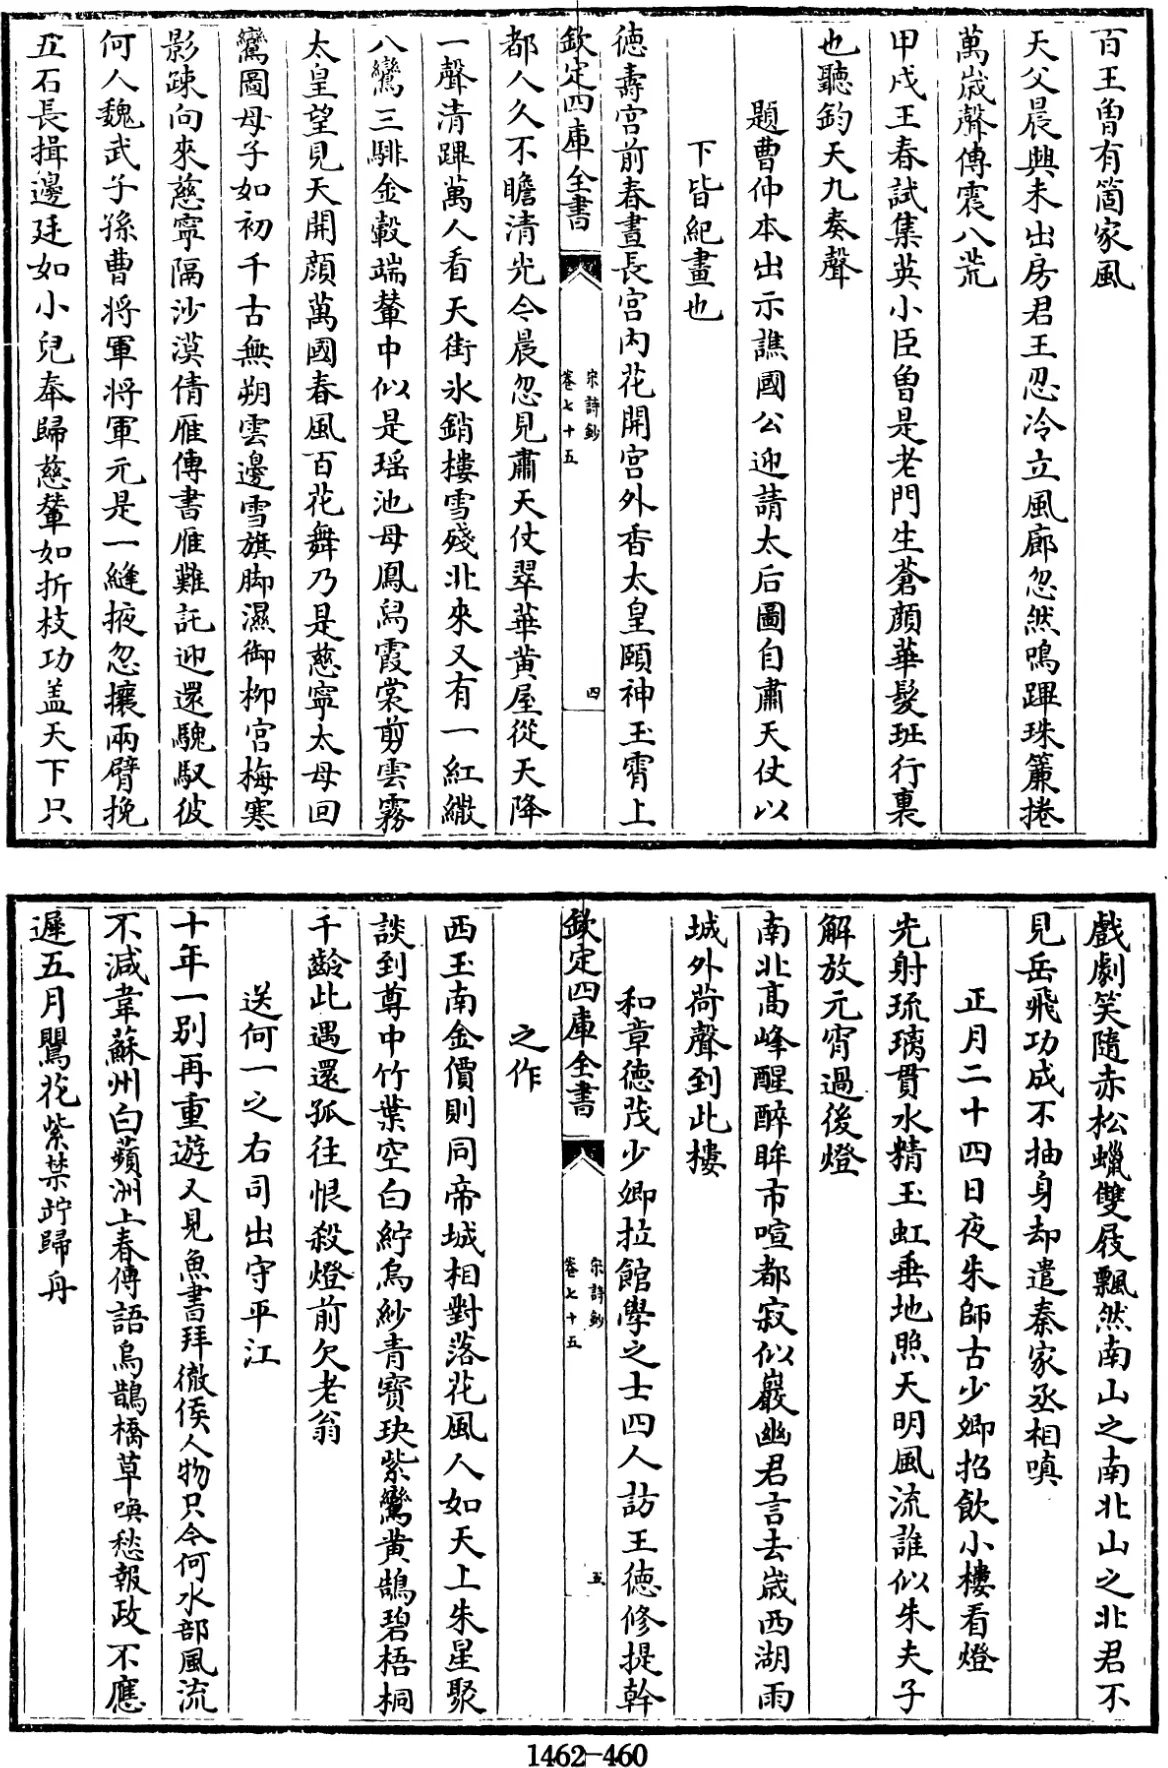 百王曽有箇家風
天父晨興未出房君王忍冷立風廊忽然鳴蹕珠簾捲
萬嵗聲傳震八荒
甲戍王春試集英小臣曽是老門生蒼顔華髮班行裏
也聽鈞天九奏聲
題曹仲本出示譙國公迎請太后圖自肅天仗以
下皆紀畫也
德壽宫前春晝長宫内花開宫外香太皇頤神玉霄上
欽定四庫全書
宋詩鈔
卷七十五
四
都人久不瞻清光今晨忽見肅天仗翠華黄屋從天降
一聲清蹕萬人看天街氷銷樓雪殘北來又有一紅繖
八鸞三騑金轂端輦中似是瑶池母鳳舄霞裳剪雲霧
太皇望見天開顔萬國春風百花舞乃是慈寧太母回
鸞圖母子如初千古無朔雲邊雪旗脚濕御栁宫梅寒
影疎向來慈寧隔沙漠倩雁傳書雁難託迎還騩馭彼
何人魏武子孫曹將軍將軍元是一縫掖忽攘兩臂挽
五石長揖邊廷如小兒奉歸慈輦如折枝功盖天下只
戲劇笑隨赤松蠟雙屐飄然南山之南北山之北君不
見岳飛功成不抽身却遣秦家丞相嗔
正月二十四日夜朱師古少卿招飲小樓看燈
光射琉璃貫水精玉虹垂地照天明風流誰似朱夫子
解放元宵過後燈
南北髙峰醒醉眸市喧都寂似巖幽君言去嵗西湖雨
城外荷聲到此樓
和章德茂少卿拉館學之士四人訪王德修提幹
之作
欽定四庫全書
宋詩鈔
卷七十五
五
西玉南金價則同帝城相對落花風人如天上朱星聚
談到尊中竹葉空白紵烏紗青寳玦紫鸞黄鵠碧梧桐
千齡此遇還孤往恨殺燈前欠老翁
送何一之右司出守平江
十年一别再重遊又見魚書拜徹侯人物只今何水部風流
不減韋蘇州白蘋洲上春傳語烏鵲橋草喚愁報政不應
遲五月鸎花紫禁竚歸舟
1462-460